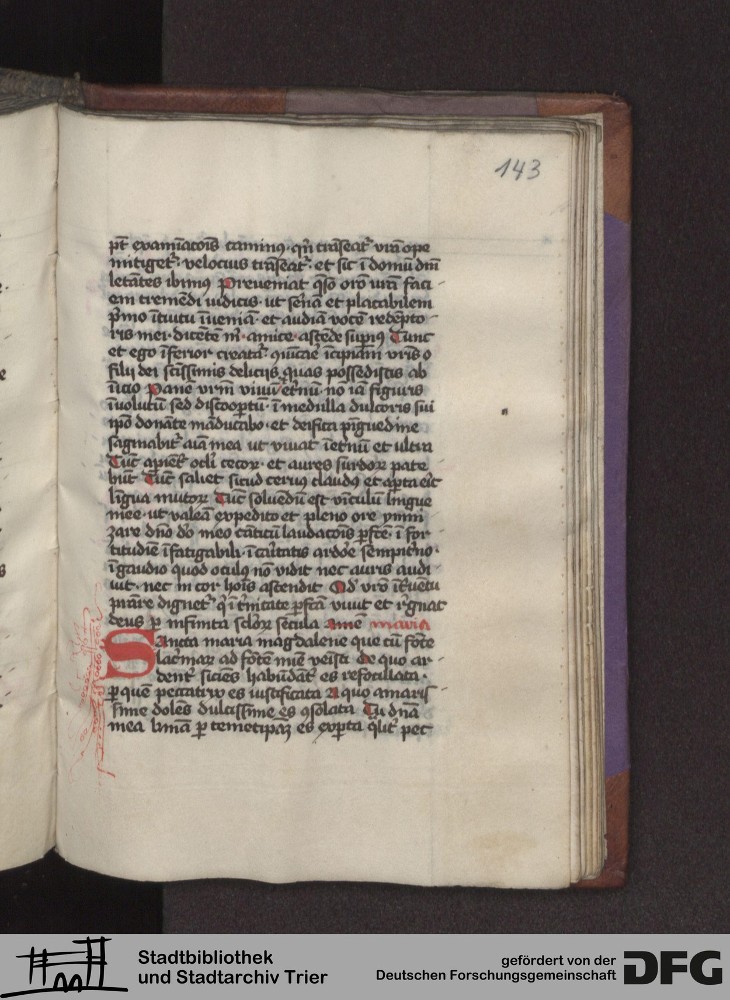 143
pt̄ examīatōis caminꝰ· qn̄ trāseat᷑ vrā ope
mitiget᷑· velocius trāseat᷑· et sic ī domū dnī
letātes ibimꝰ Preveniat q̄so orō vrā faci
em tremēdi iudicis· ut serīa et placabilem
p̄mo ītuitu īueniā· et audiā vocē redēpto
ris mei· dicētē m̄· amice· ascēde supiꝰ Tunc
et ego īferior creata᷑ īcipiam vris o
filij dei scīssimis delicijs quas possedistis ab
īicio Panē vrm̄ vivū et̄nū nō iā figuris
īuolutū sed discooptū· ī medulla dulcoris sui
ipō donāte māducabo· et deifica pīguedine
saginabit᷑ aīa mea ut vivat īet̄nū et ultra
Tūc apient᷑ ocl̄i cecoꝝ· et aures surdoꝝ pate
būt Tūc saliet sicud ceruꝰ claudꝰ et apta eīt
līgua mutoꝝ Tūc soluendū est vīculū lingue
mee· ut valeā expedito et pleno ore ymni
zare dnō dō meo cātitū laudacōis pfc̄te· ī for
titudīe īfatigabili· ī cātatis ardoē sempit̄no·
īgaudio quod oculꝰ nō vidit nec auris audi
uit· nec in cor hoīs ascendit Qd̄ vrō īt̄uētu
p̄rare dignet᷑ q̄ ī t̄nitate pfc̄tā vivit et r̄gnat
deus p̱ infinita sc̄loꝝ sēcula Amē maria
Sancta maria magdalene que cū fōte
lac̄maꝝ ad fōtē mīe vēisti de quo ar
dent᷑ siciēs habūdāt᷑ es refocillata·
p̱ quē peccatrix es iustificata A quo amaris
sime dolēs dulcissime es ꝯsolata Tu dnā
mea p̱ temetip̄aꝫ es expta qlit᷑ pec
Stadtbibliothek
und Stadtarchiv Trier
gefördert von der
Deutschen Forschungsgemeinschaft
DFG